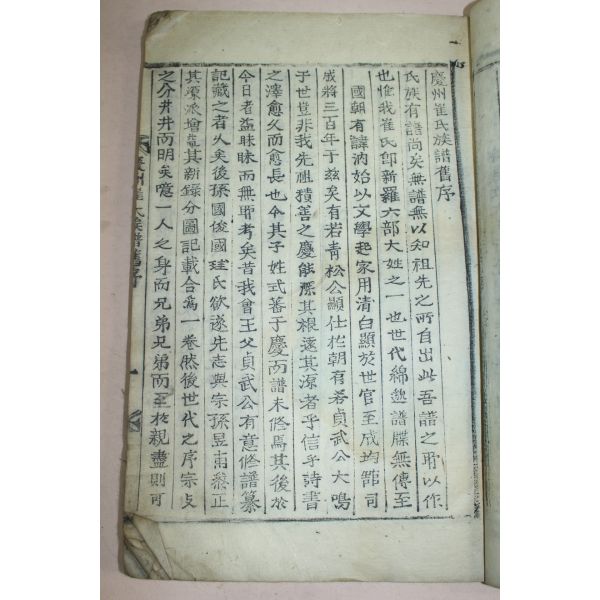 慶州崔氏族譜舊序
氏族有譜尚矣無譜無以知祖先之所自出此吾譜之所以作
也惟我崔氏卽新羅六部大姓之一也世代綿邈譜牒無傳至
國朝有諱汭始以文學起家用清白顯於世官至成均館司
成將三百年于玆矣有若靑松公顯仕於朝有若貞武公大鳴
于世豈非我先祖積善之慶能深其根遠其源者乎信乎詩書
之澤愈久而愈長也今其子姓式蕃于慶而譜未修焉其後於
今日者益眛眛而無所考矣昔我曾王父貞武公有意修譜纂
記藏之者久矣後孫國俊國珪氏欲遂先志與宗孫昱甫釐正
其源派增其新錄分圖記載合爲一卷然後世代之序宗支
之分井井而明矣噫一人之身而兄弟兄弟而至於親盡則可
慶州崔氏族譜舊序
一